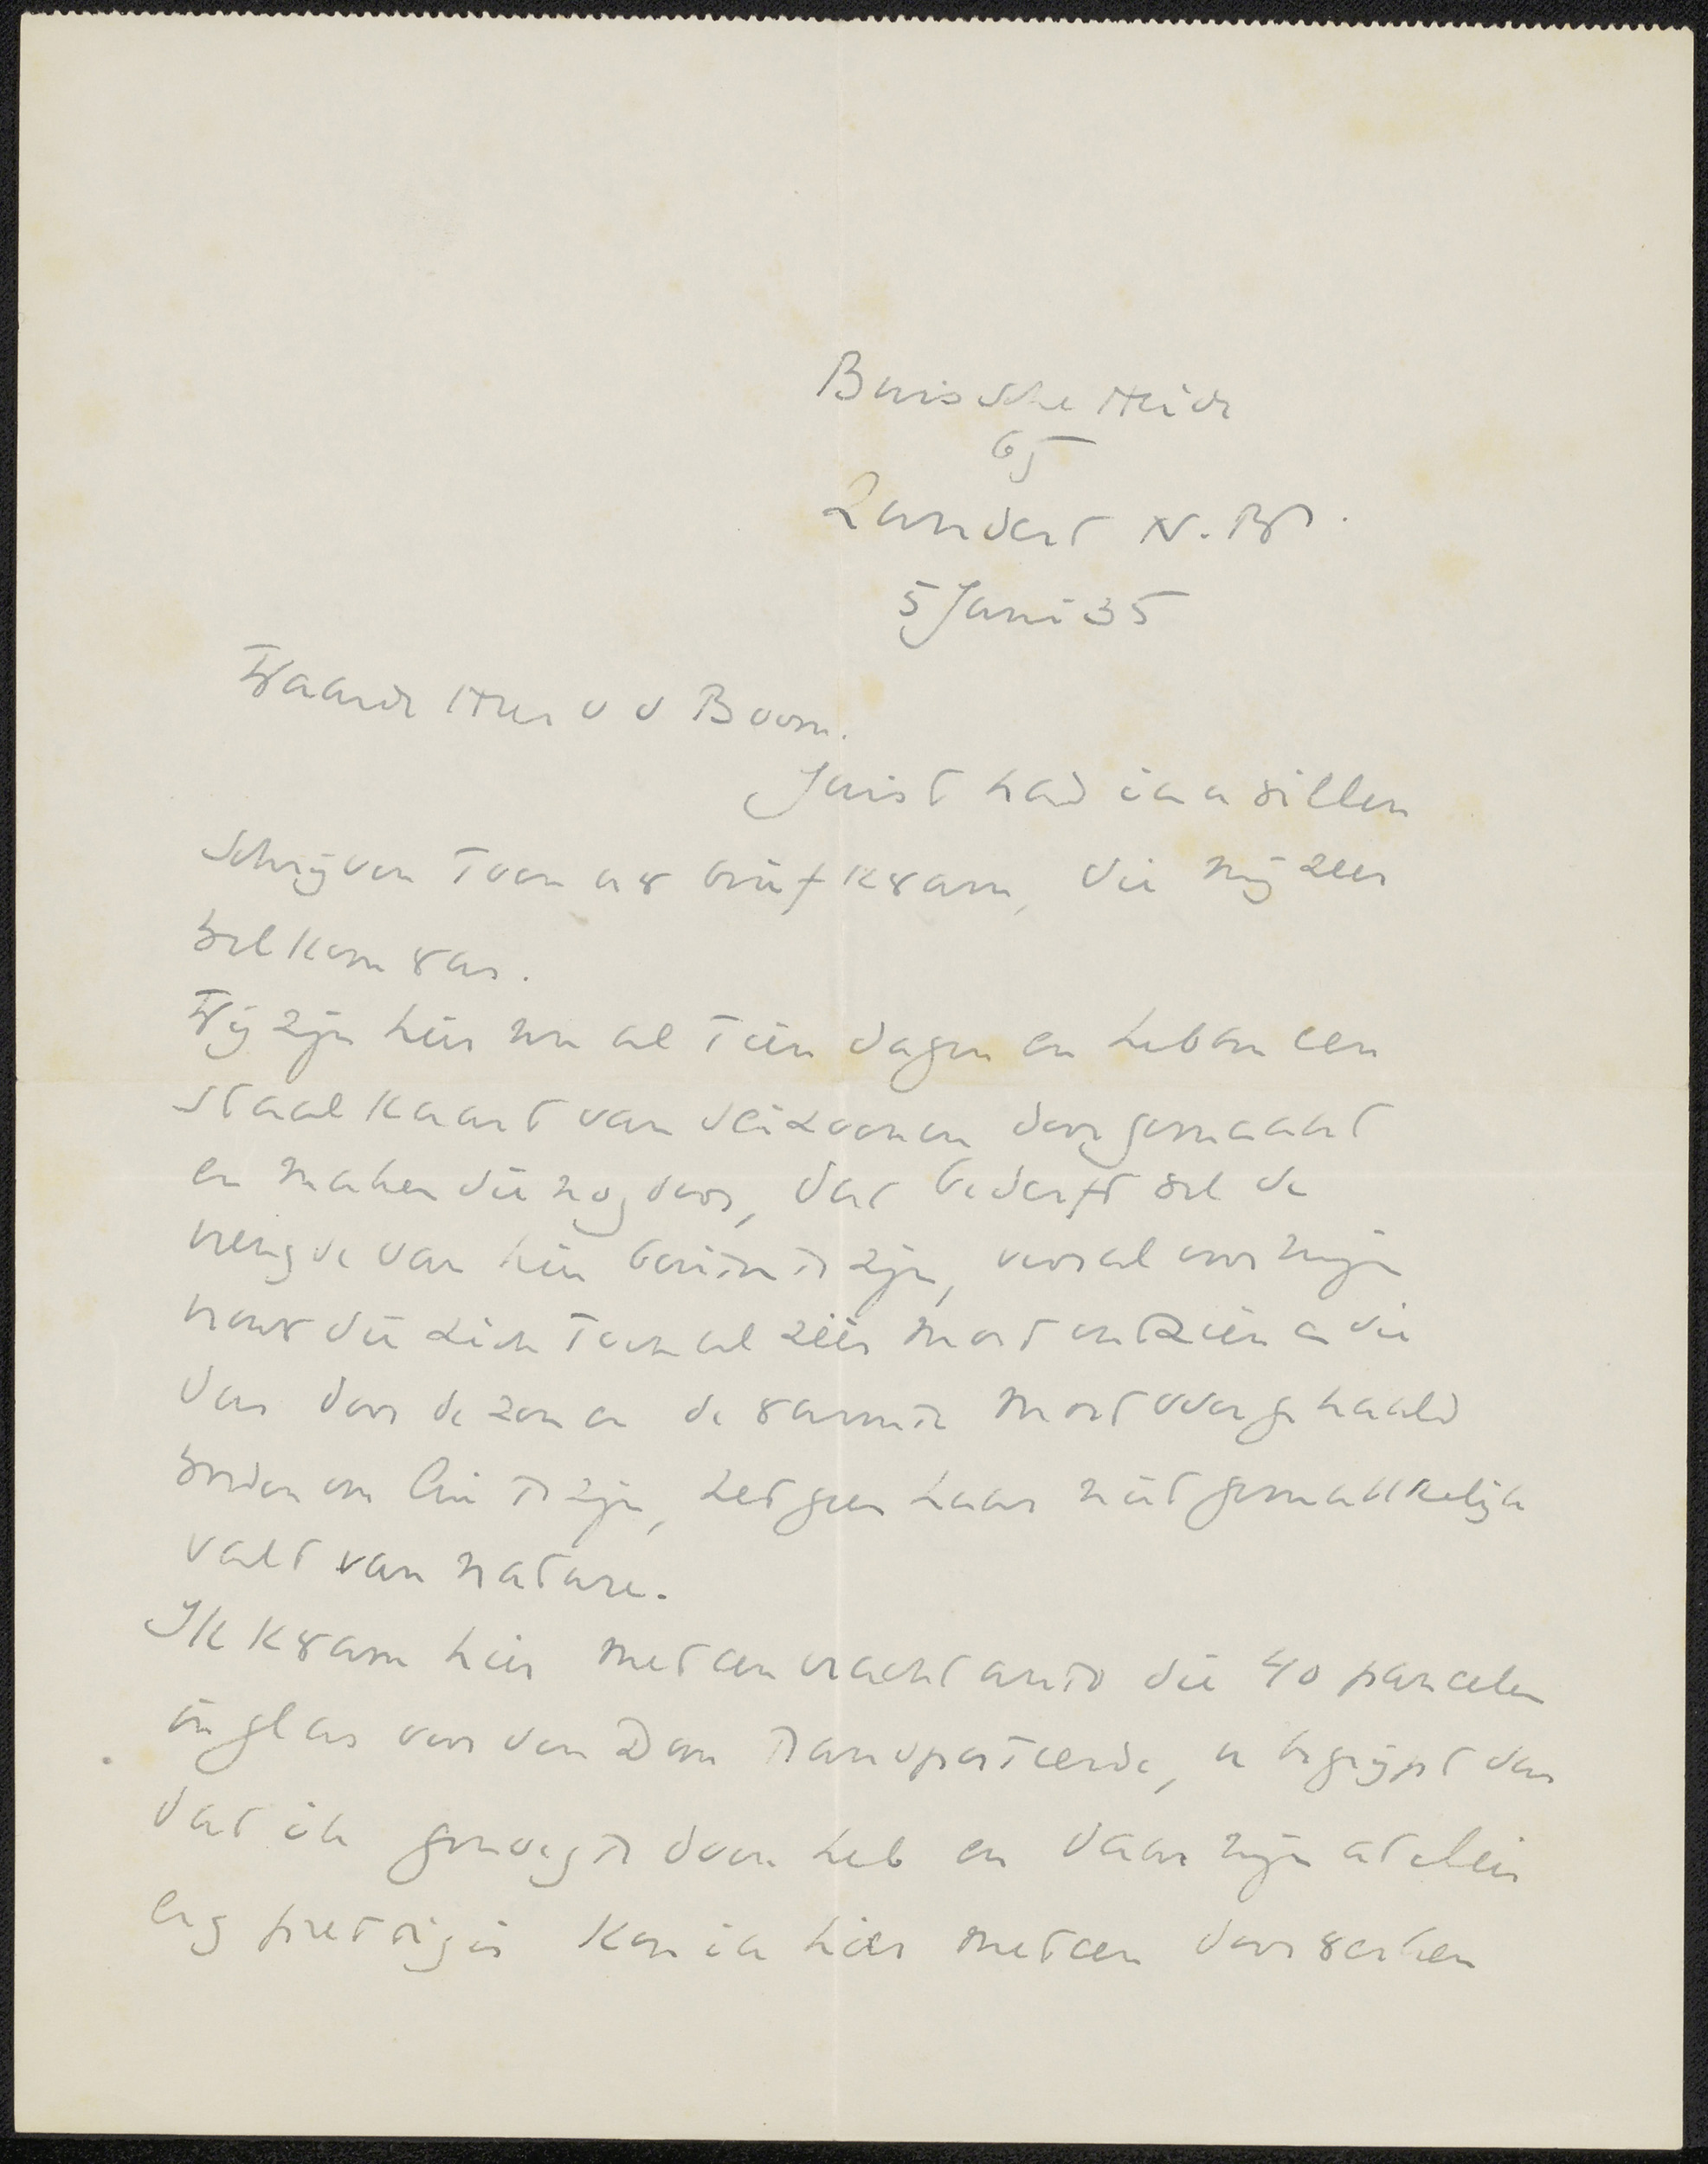 Buissche Heide
65
Zundert N. Br.
5 Juni 35
Waarde Heer v d Boom.
Juist had ik u willen
schrijven toen uw brief kwam, die mij zeer
welkom was.
Wij zijn hier nu al tien dagen en hebben een
staalkaart van seizoenen doorgemaakt
en maken die nog door, dat bederft wel de
vreugde van hier buiten te zijn, vooral voor mijn
vrouw die zich toch al zéér moet ontzien en die
dan door de zon en de warmte moet overgehaald
worden om lui te zijn, hetgeen haar niet gemakkelijk
valt van nature.
Ik kwam hier met een vrachtauto die 40 panelen
in glas voor den Dom transporteerde, u begrijpt dan
dat ik genoeg te doen heb en daar mijn atelier
erg prettig is kon ik hier meteen doorwerken